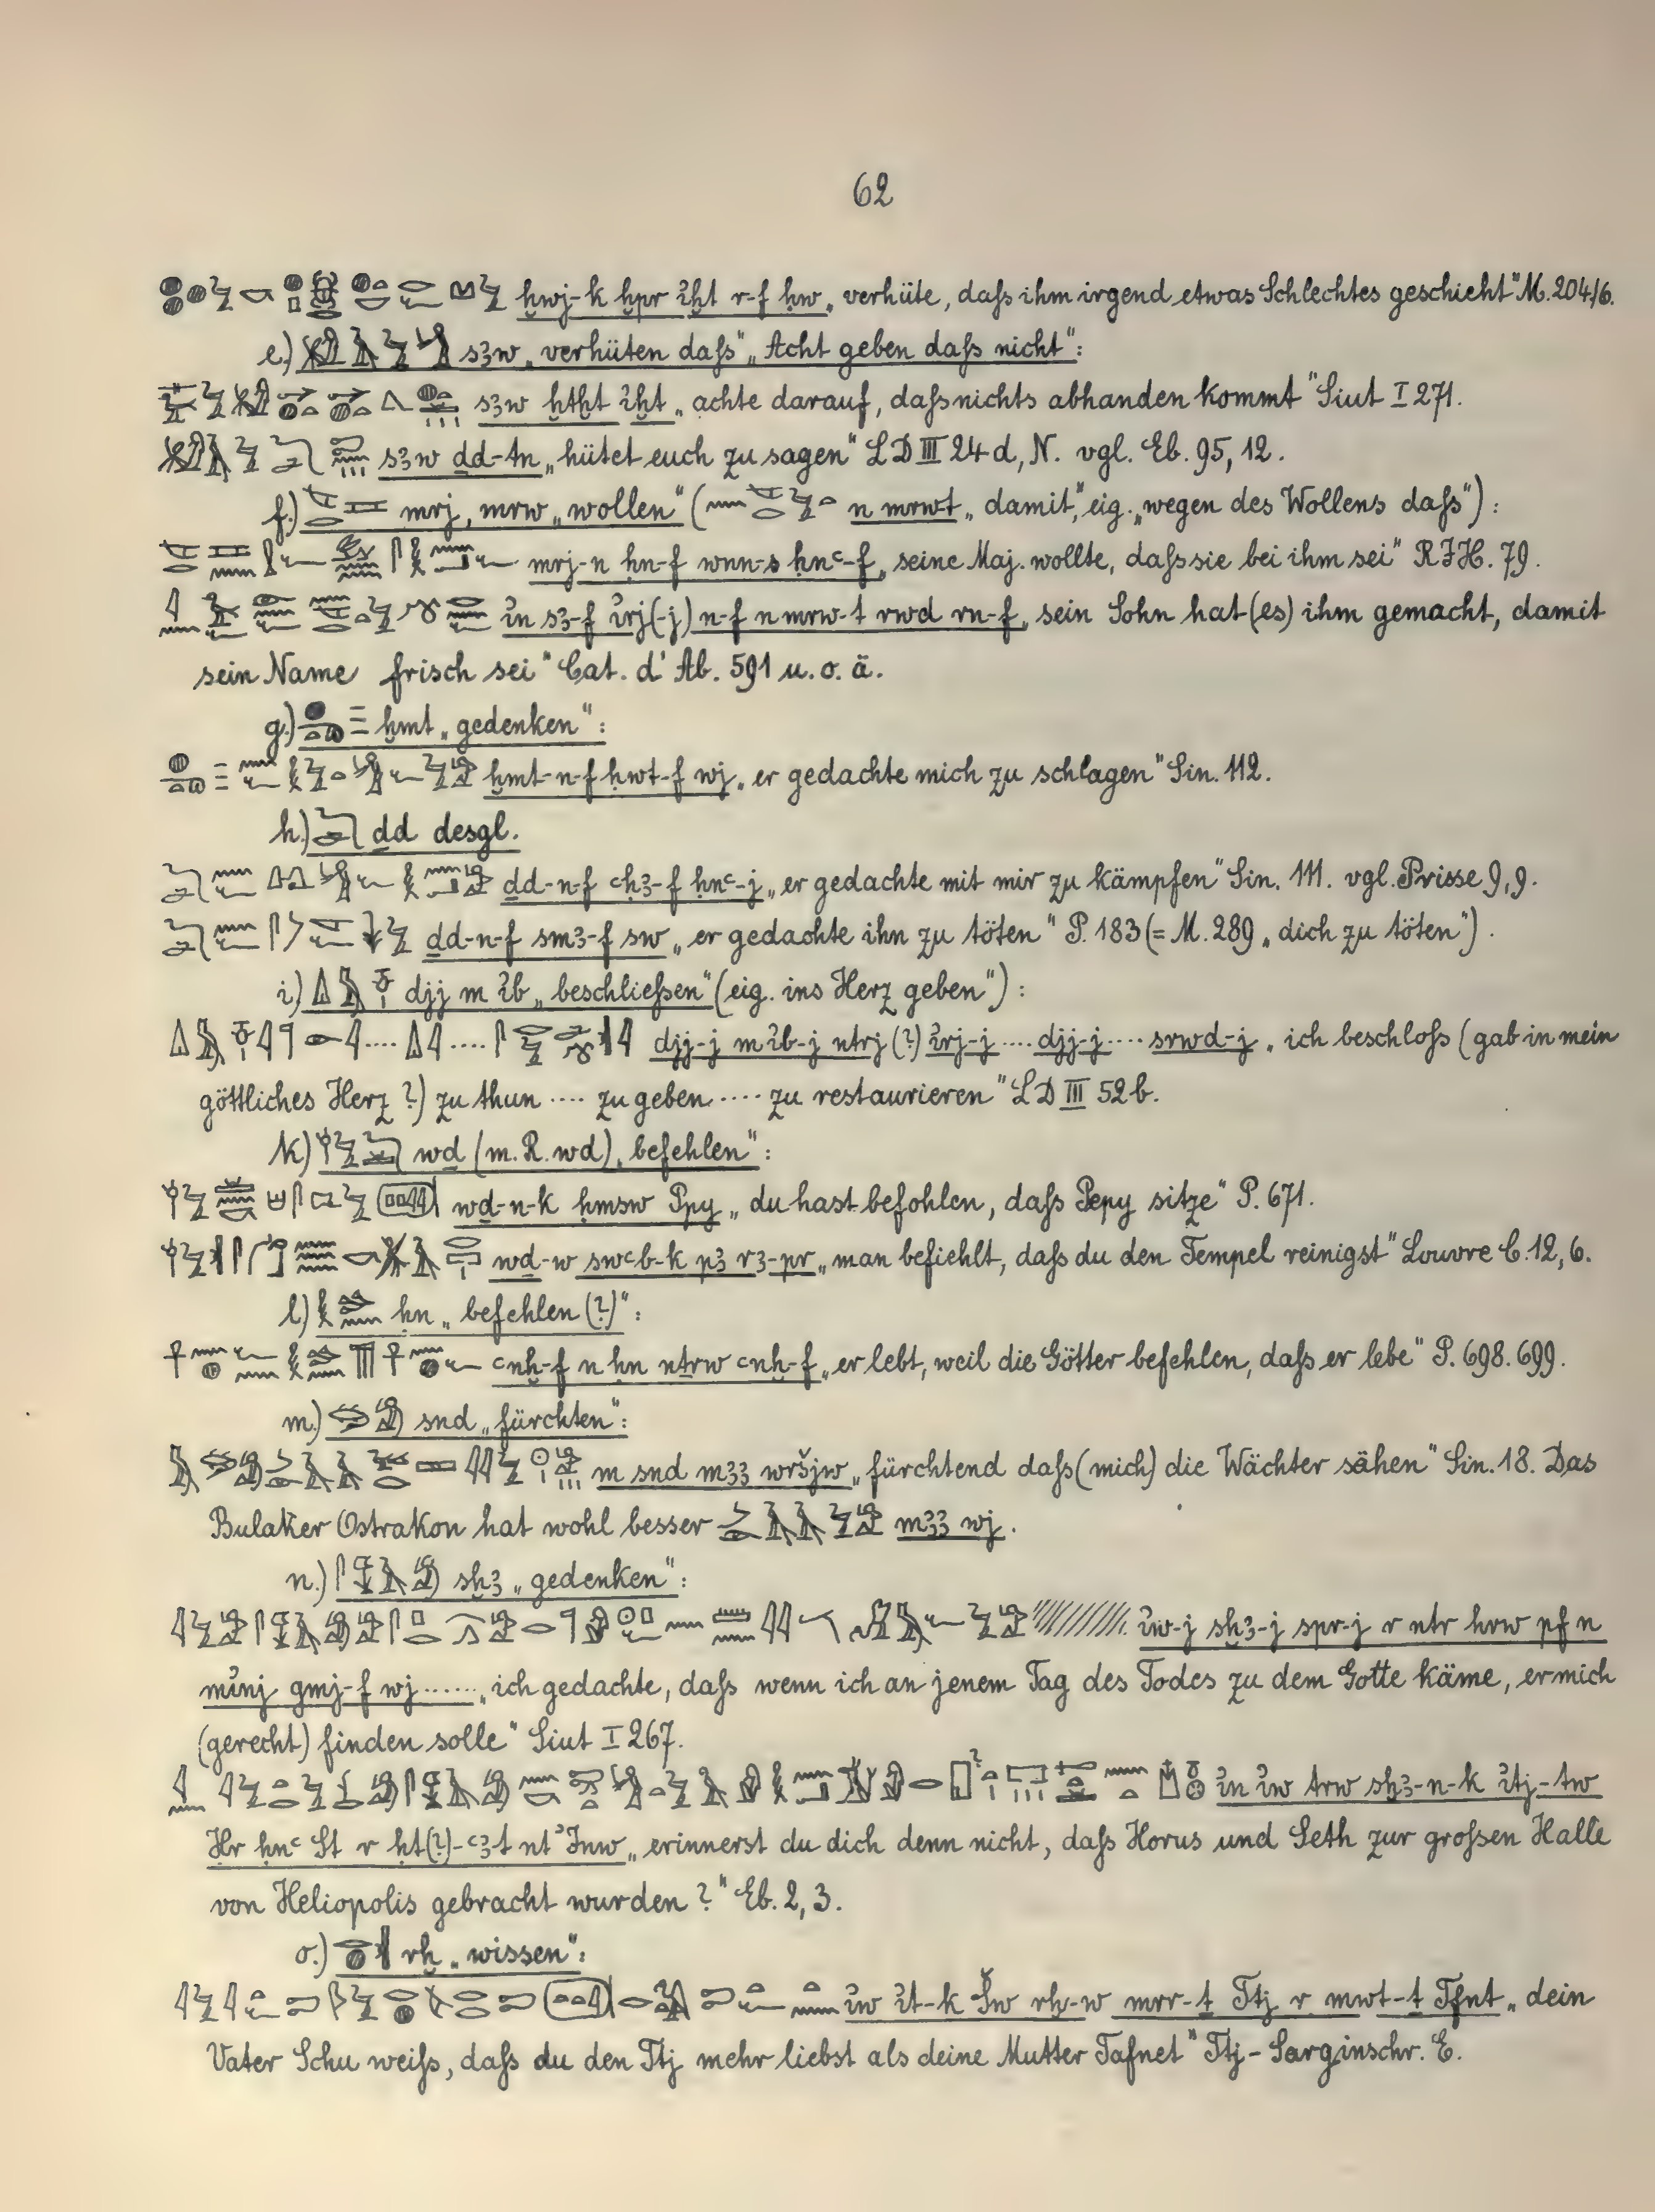 62
ḫwj-k ḫpr ἰḫt r-f ḥw „verhüte, daſs ihm irgend etwas Schlechtes geschieht" M. 204/6.
e.) s3w „verhüten daſs" „Acht geben daſs nicht":
s3w ḫtḫt ἰḫt „achte darauf, daſs nichts abhanden kommt" Siut I 271.
s3w ḏd-tn „hütet euch zu sagen" LD III 24 d, N. vgl. Eb. 95, 12.
f.) mrj, mrw „wollen" ( n mrwt „damit", eig. „wegen des Wollens daſs") :
mrj-n ḥn-f wnn-s ḥnꜥ-f „seine Maj. wollte, daſs sie bei ihm sei" RJH. 79.
ἰn s3-f ἰrj(-j) n-f n mrw-t rwd rn-f „sein Sohn hat (es) ihm gemacht, damit
sein Name frisch sei" Cat. d'Ab. 591 u. o. ä.
g.) ḫmt „gedenken":
ḫmt-n-f ḥwt-f wj „er gedachte mich zu schlagen" Sin. 112.
h.) ḏd desgl.
ḏd-n-f ꜥḥ3-f ḥnꜥ-j „er gedachte mit mir zu kämpfen" Sin. 111. vgl. Prisse 9, 9.
ḏd-n-f sm3-f sw „er gedachte ihn zu töten" P. 183 (= M. 289 „dich zu töten").
i.) djj m ἰb „beschlieſsen" (eig. ins Herz geben") :
djj-j m ἰb-j ntrj (?) ἰrj-j .... djj-j .... srwd-j „ich beschloſs (gab in mein
göttliches Herz ?) zu thun .... zu geben .... zu restaurieren" LD III 52 b.
k.) wḏ (m. R. wd) „befehlen":
wḏ-n-k ḥmsw Ppy „du hast befohlen, daſs Pepy sitze" P. 671.
wḏ-w swꜥb-k p3 r3-pr „man befiehlt, daſs du den Tempel reinigst" Louvre C. 12, 6.
l.) ḥn „befehlen (?)":
ꜥnḫ-f n ḥn nṯrw ꜥnḫ-f „er lebt, weil die Götter befehlen, daſs er lebe" P. 698. 699.
m.) snd „fürchten":
m snd m33 wršjw „fürchtend daſs (mich) die Wächter sähen" Sin. 18. Das
Bulaker Ostrakon hat wohl besser m33 wj.
n.) sḫ3 „gedenken":
ἰw-j sḫ3-j spr-j r ntr hrw pf n
mἰnj gmj-f wj ...... „ich gedachte, daſs wenn ich an jenem Tag des Todes zu dem Gotte käme, er mich
(gerecht) finden solle" Siut I 267.
ἰn ἰw trw sḫ3-n-k ἰtj-tw
Ḥr ḥnꜥ St r ḥt(?)-ꜥ3-t nt ἰnw „erinnerst du dich denn nicht, daſs Horus und Seth zur groſsen Halle
von Heliopolis gebracht wurden ?" Eb. 2, 3.
o.) rḫ „wissen":
ἰw ἰt-k Šw rḫ-w mrr-ṯ Ttj r mwt-ṯ Tfnt „dein
Vater Schu weiſs, daſs du den Ttj mehr liebst als deine Mutter Tafnet" Ttj-Sarginschr. E.